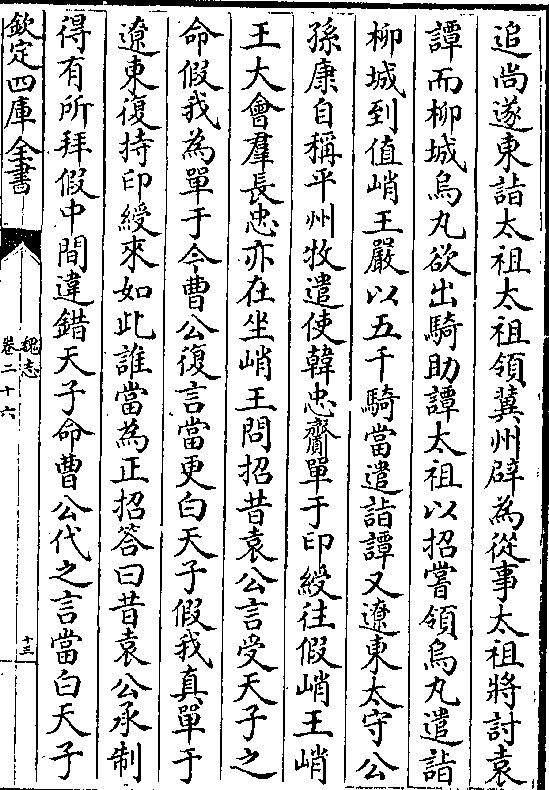 追尚遂東詣太祖太祖領冀州辟為從事太祖將討袁
譚而柳城烏丸欲出騎助譚太祖以招嘗領烏丸遣詣
柳城到值峭王嚴以五千騎當遣詣譚又遼東太守公
孫康自稱平州牧遣使韓忠齎單于印綬往假峭王峭
王大會羣長忠亦在坐峭王問招昔袁公言受天子之
命假我為單于今曹公復言當更白天子假我真單于
遼東復持印綬來如此誰當為正招答曰昔袁公承制
得有所拜假中間違錯天子命曹公代之言當白天子
欽定四庫全書
魏志
卷二十六
十三